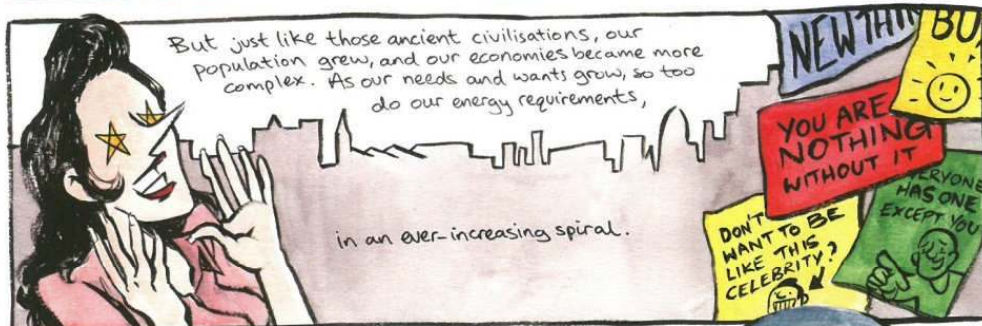 But just like those ancient civilisations, our
population grew, and our economies became more
complex. As our needs and wants grow, so too
do our energy requirements,
in an ever-increasing spiral.
NEW
YOU ARE
NOTHING
WITHOUT IT
HAS ONE
EXCEPT YOU
DON'T
WANT TO BE
LIKE THIS
CELEBRITY?